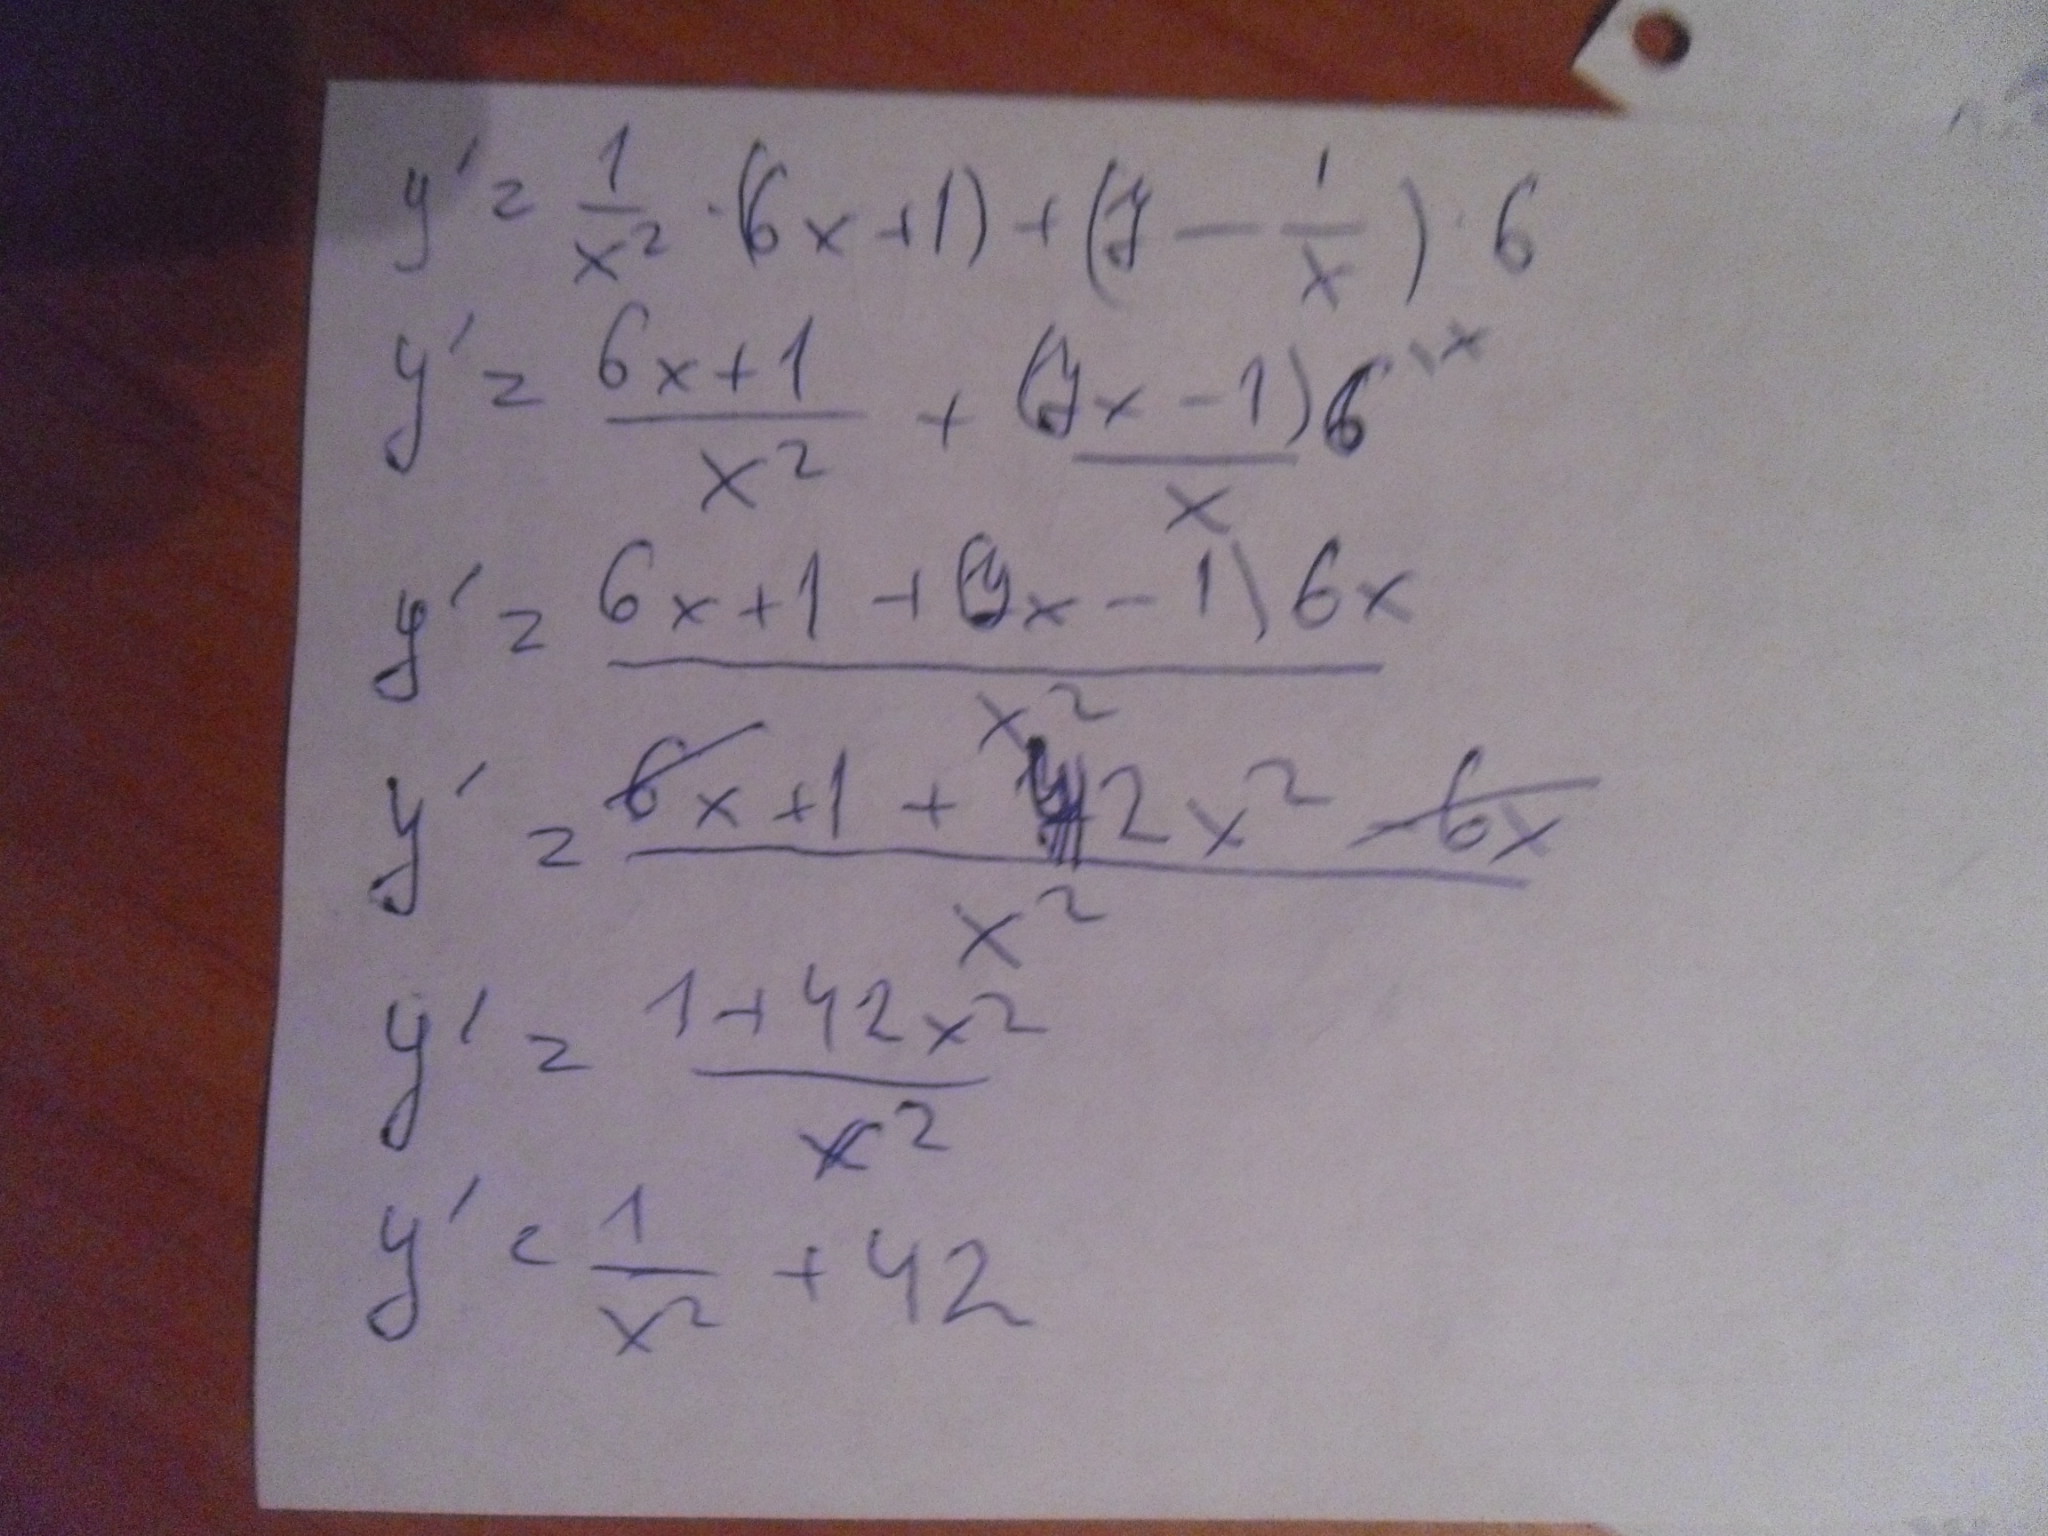 y' = 1/x² · (6x+1) + (7 − 1/x) · 6
y' = (6x+1)/x² + (7x−1)/x 6 \x
y' = (6x+1+(7x−1)6x)/x²
y' = (6x+1+42x²−6x)/x²
y' = (1+42x²)/x²
y' = 1/x² + 42